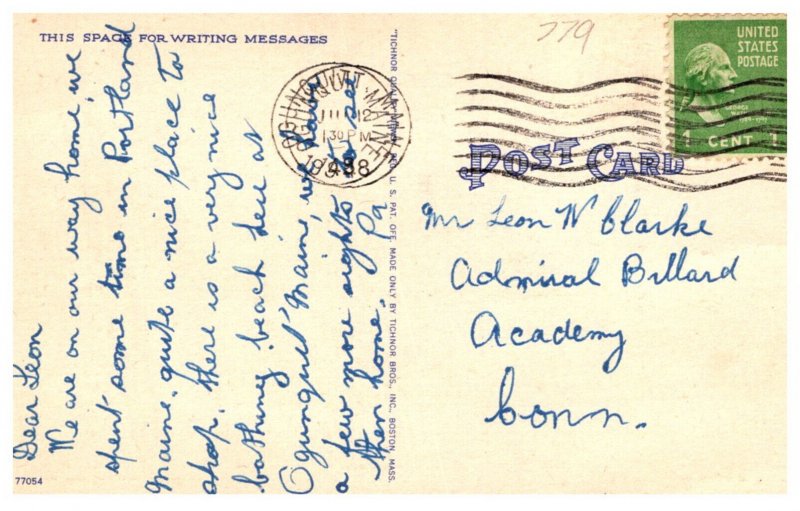 THIS SPACE FOR WRITING MESSAGES
Dear Leon
We are on our way home, we
spent some time in Portland
Maine, quite a nice place to
shop. there is a very nice
bathing beach here at
Ogunquit Maine, we have
a few more sights to see
then home. Pa
77054
"TICHNOR QUALITY REG. U. S. PAT. OFF. MADE ONLY BY TICHNOR BROS., INC., BOSTON, MASS.
OGUNQUIT MAINE
12
130 PM
1938
779
UNITED
STATES
POSTAGE
GEORGE
1 CENT 1
POST CARD
Mr Leon W Clarke
Admiral Billard
Academy
Conn.